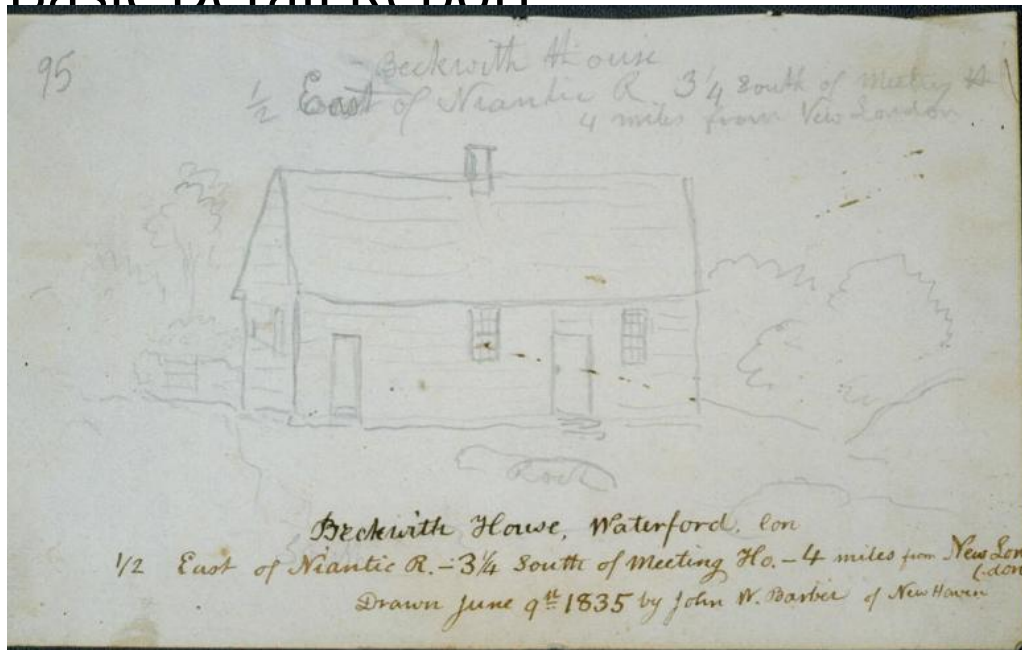 Basic Detail Report
95
Beckwith House
1/2 East of Niantic R 3 1/4 South of Meeting H
4 miles from New London
Rock
Beckwith House, Waterford. Con
1/2 East of Niantic R. – 3 1/4 South of Meeting Ho. – 4 miles from New Lon
(don
Drawn June 9th 1835 by John W. Barber of New Haven